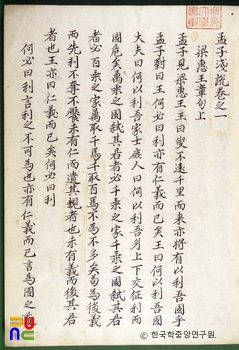 孟子淺說卷之一
梁惠王章句上
孟子見梁惠王王曰叟不遠千里而來亦將有以利吾國乎
孟子對曰王何必曰利亦有仁義而已矣王曰何以利吾國
大夫曰何以利吾家士庶人曰何以利吾身上下交征利而
國危矣萬乘之國弑其君者必千乘之家千乘之國弑其君
者必百乘之家萬取千焉千取百焉不為不多矣苟為後義
而先利不奪不饜未有仁而遺其親者也未有義而後其君
者也王亦曰仁義而已矣何必曰利
何必曰利言利之不可為也亦有仁義而已言為國之
ⓒ한국학중앙연구원.